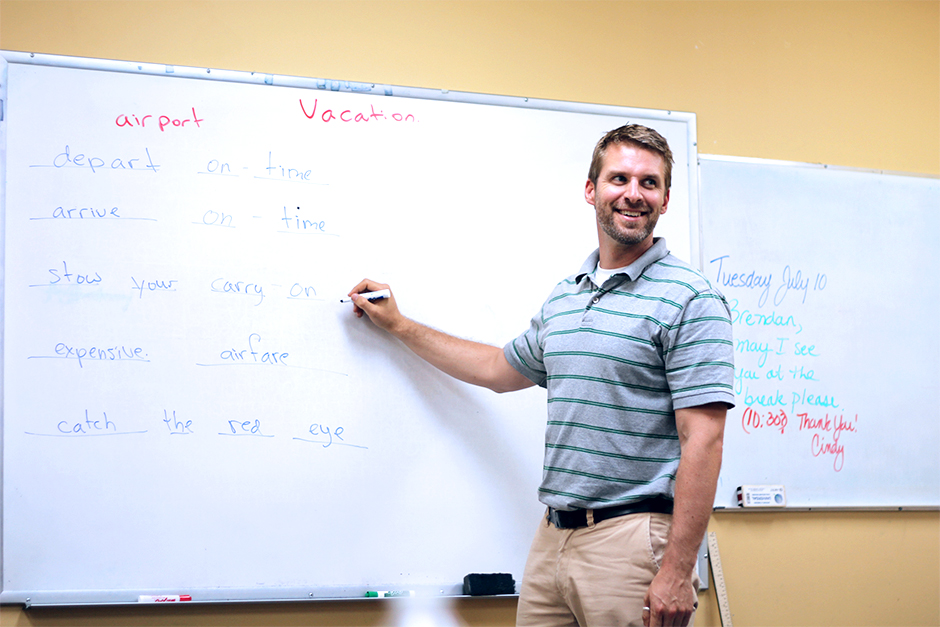 airport Vacation.
depart on - time
arrive on - time
stow your carry - on
expensive. airfare
catch the red eye
Tuesday July 10
Brendan,
may I see
you at the
break please
(10:30) Thank you!
Cindy